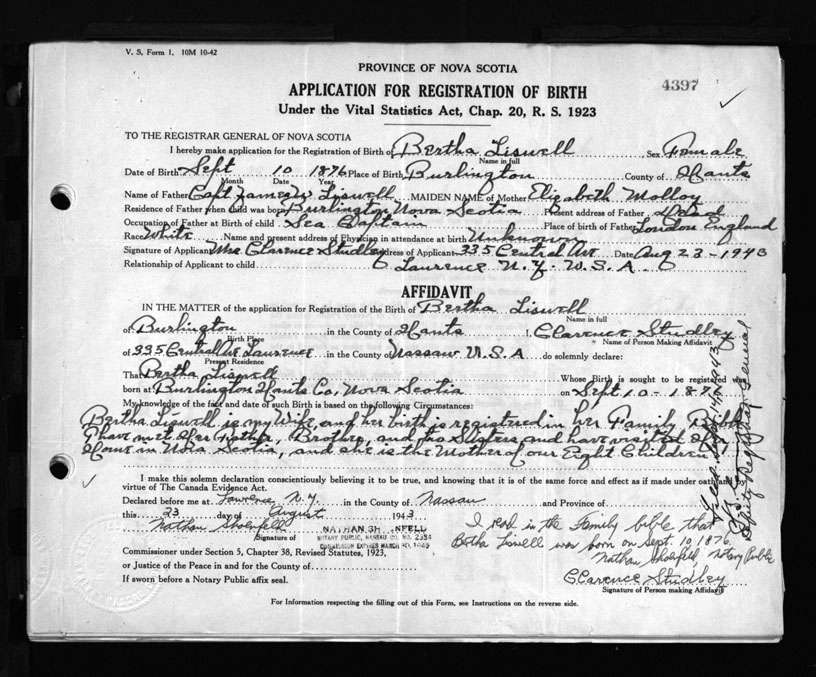 V. S. Form 1. 10M 10-42
PROVINCE OF NOVA SCOTIA
4397
APPLICATION FOR REGISTRATION OF BIRTH
Under the Vital Statistics Act, Chap. 20, R. S. 1923
TO THE REGISTRAR GENERAL OF NOVA SCOTIA
I hereby make application for the Registration of Birth of Bertha Liswell Sex Female
Name in full
Date of Birth Sept 10 1876 Place of Birth Burlington County of Hants
Month Date Year
Name of Father Capt James W Liswell MAIDEN NAME of Mother Elizabeth Molloy
Residence of Father when Child was born Burlington Nova Scotia Present address of Father Dead
Occupation of Father at Birth of child Sea Captain Place of birth of Father London England
Race White Name and present address of Physician in attendance at birth Unknown
Signature of Applicant Mrs Clarence Studley Address of Applicant 335 Central Ave Date Aug 23-1943
Relationship of Applicant to child Lawrence N.Y. U.S.A.
AFFIDAVIT
IN THE MATTER of the application for Registration of the Birth of Bertha Liswell
Name in full
of Burlington in the County of Hants I, Clarence Studley
Birth Place Name of Person Making Affidavit
of 335 Central Ave Lawrence in the County of Nassau U.S.A do solemnly declare:
Present Residence
That Bertha Liswell Whose Birth is sought to be registered was
born at Burlington Hants Co, Nova Scotia on Sept 10-1876
My knowledge of the fact and date of such Birth is based on the following Circumstances:
Bertha Liswell is my Wife, and her birth is registered in her Family Bible
I have met her Father, Brother, and two Sisters and have visited her
Home in Nova Scotia, and she is the Mother of our Eight Children
I make this solemn declaration conscientiously believing it to be true, and knowing that it is of the same force and effect as if made under oath by
virtue of The Canada Evidence Act.
Declared before me at Lawrence N.Y. in the County of Nassau and Province of
this 23 day of August 1943
Nathan Shoenfeld
NATHAN SH NFELD
Signature of
NOTARY PUBLIC, NASSAU CO. NO. 2334
COMMISSION EXPIRES MARCH 30, 1945
Commissioner under Section 5, Chapter 38, Revised Statutes, 1923,
or Justice of the Peace in and for the County of
If sworn before a Notary Public affix seal.
I read in the Family bible that
Bertha Liswell was born on Sept. 10, 1876.
Nathan Shoenfeld, Notary Public
Clarence Studley
Signature of Person making Affidavit
For Information respecting the filling out of this Form, see Instructions on the reverse side.
Deputy Registrar General